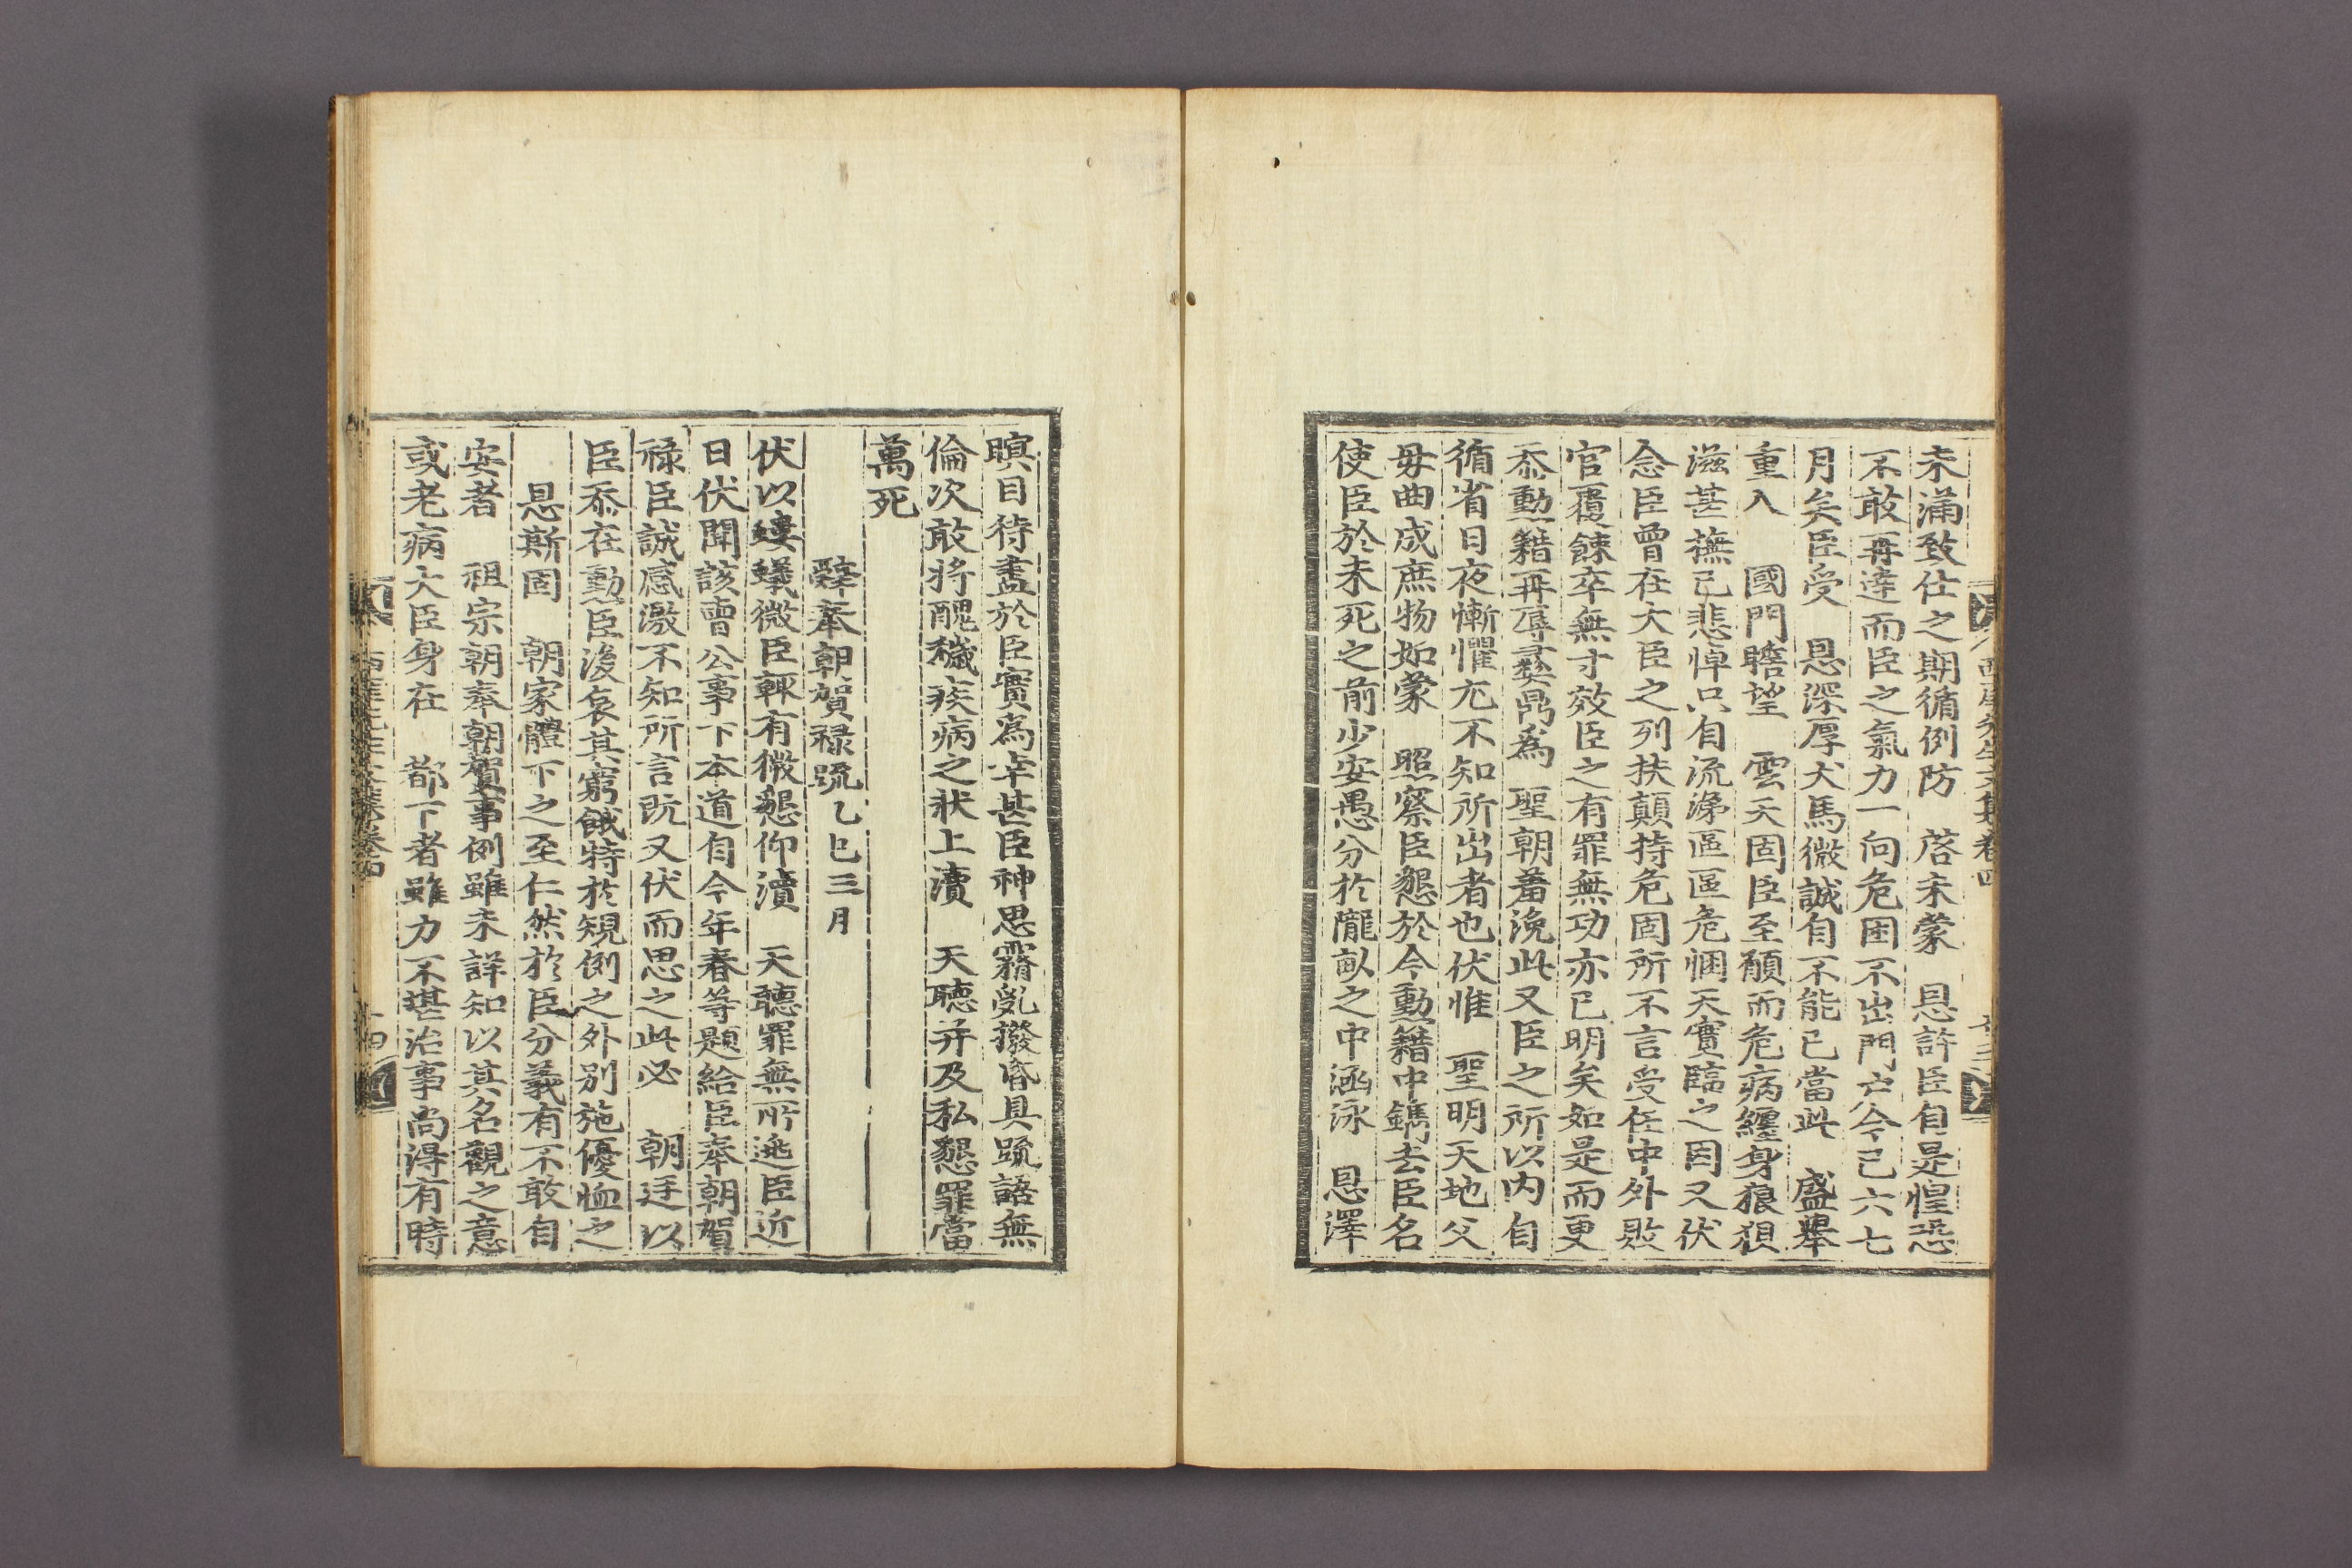 西厓先生文集卷四
未滿致仕之期循例防 啓未蒙 恩許臣自是惶恐
不敢再達而臣之氣力一向危困不出門户今已六七
月矣臣受 恩深厚犬馬微誠自不能已當此 盛擧
重入 國門瞻望 雲天固臣至願而危病纏身狼狽
滋甚撫己悲悼只自流涕區區危悃天實臨之因又伏
念臣曾在大臣之列扶顚持危固所不言受任中外敗
官覆餗卒無寸效臣之有罪無功亦已明矣如是而更
忝勳籍再辱彛鼎爲 聖朝羞浼此又臣之所以內自
循省日夜慚懼尤不知所出者也伏惟 聖明天地父
母曲成庶物如蒙 照察臣懇於今勳籍中鐫去臣名
使臣於未死之前少安愚分於隴畝之中涵泳 恩澤
瞑目待盡於臣實爲幸甚臣神思霿亂撥昏具疏語無
倫次敢將醜穢疾病之狀上瀆 天聽幷及私懇罪當
萬死
辭奉朝賀祿疏 乙巳三月
伏以螻蟻微臣輒有微懇仰瀆 天聽罪無所逃臣近
日伏聞該曹公事下本道自今年春等題給臣奉朝賀
祿臣誠感激不知所言旣又伏而思之此必 朝廷以
臣忝在勳臣後哀其窮餓特於規例之外別施優恤之
恩斯固 朝家體下之至仁然於臣分義有不敢自
安者 祖宗朝奉朝賀事例雖未詳知以其名觀之意
或老病大臣身在 都下者雖力不堪治事尚得有時